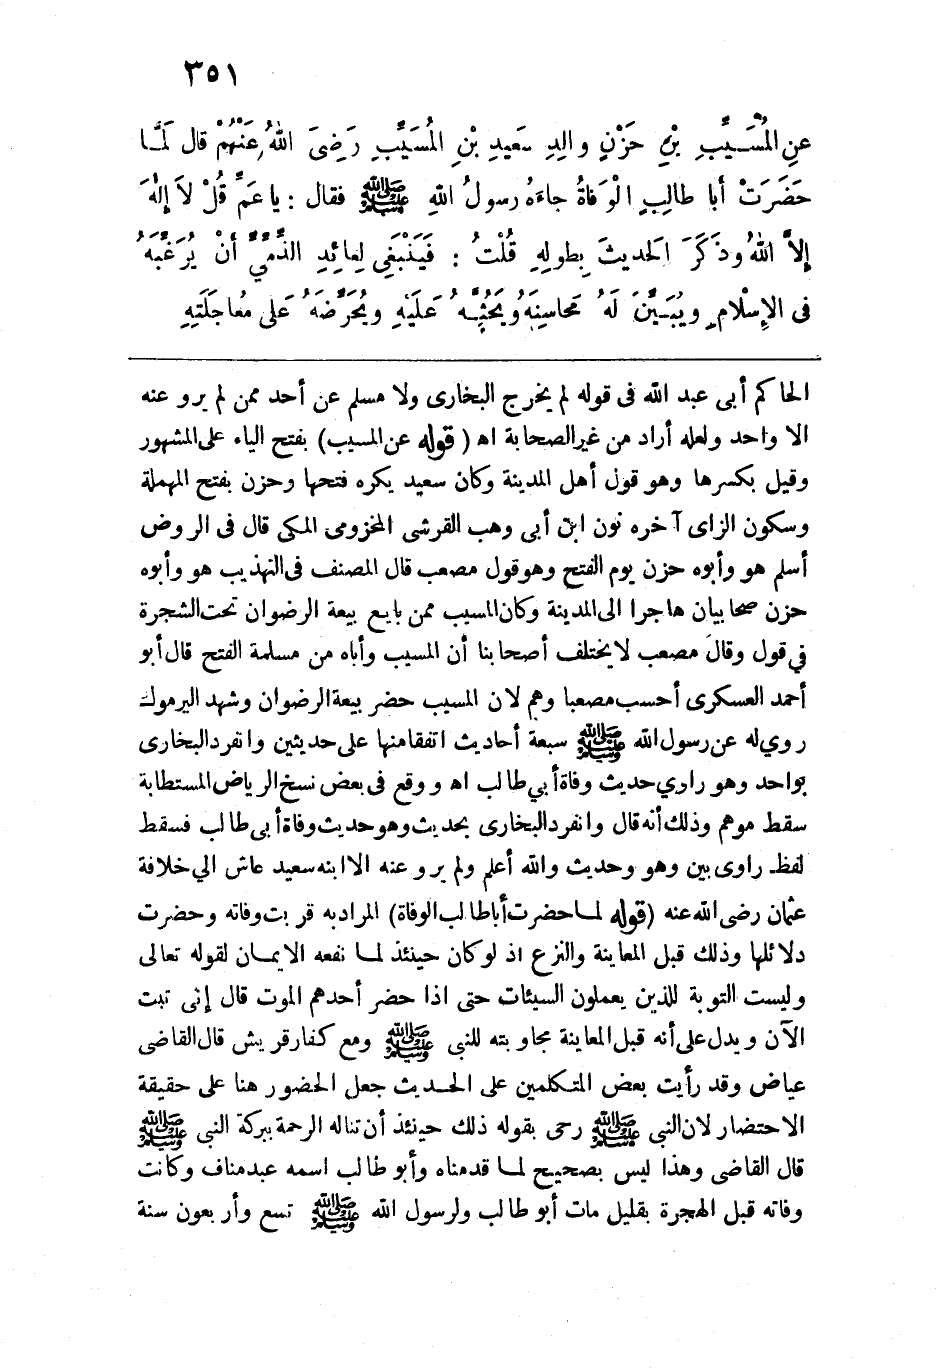 ٣٥١
عنِ المُسَيَّبِ بْنِ حَزْنٍ والِدِ سَعِيدِ بْنِ المُسَيَّبِ رَضِىَ اللهُ عَنْهُمْ قال لَمَّا
حَضَرَتْ أبا طالِبٍ الْوَفاةُ جاءَهُ رسولُ اللهِ ﷺ فقال : يا عَمِّ قُلْ لاَ إِلٰهَ
إِلاَّ اللهُ وذَكَرَ الحَديثَ بِطولِهِ قُلْتُ : فَيَنْبَغِى لِعائِدِ الذِّمِّيِّ أنْ يُرَغِّبَهُ
فى الإِسْلامِ ويُبَيِّنَ لَهُ مَحاسِنَهُ ويَحُثَّهُ عَلَيْهِ ويُحَرِّضَهُ عَلى مُعاجَلَتِهِ
الحاكم أبى عبد الله فى قوله لم يخرج البخارى ولا مسلم عن أحد ممن لم يرو عنه
الا واحد ولعله أراد من غير الصحابة اه ( قوله عن المسيب ) بفتح الياء على المشهور
وقيل بكسرها وهو قول أهل المدينة وكان سعيد يكره فتحها وحزن بفتح المهملة
وسكون الزاى آخره نون ابن أبى وهب القرشى المخزومى المكى قال فى الروض
أسلم هو وأبوه حزن يوم الفتح وهو قول مصعب قال المصنف فى التهذيب هو وأبوه
حزن صحابيان هاجرا الى المدينة وكان المسيب ممن بايع بيعة الرضوان تحت الشجرة
في قول وقال مصعب لا يختلف أصحابنا أن المسيب وأباه من مسلمة الفتح قال أبو
أحمد العسكرى أحسب مصعبا وهم لان المسيب حضر بيعة الرضوان وشهد اليرموك
روي له عن رسول الله ﷺ سبعة أحاديث اتفقا منها على حديثين وانفرد البخارى
بواحد وهو راوي حديث وفاة أبي طالب اه ووقع فى بعض نسخ الرياض المستطابة
سقط موهم وذلك أنه قال وانفرد البخارى بحديث وهو حديث وفاة أبى طالب فسقط
لفظ راوى بين وهو وحديث والله أعلم ولم يرو عنه الا ابنه سعيد عاش الي خلافة
عثمان رضى الله عنه ( قوله لما حضرت أبا طالب الوفاة ) المراد به قربت وفاته وحضرت
دلائلها وذلك قبل المعاينة والنزع اذ لو كان حينئذ لما نفعه الايمان لقوله تعالى
وليست التوبة للذين يعملون السيئات حتى اذا حضر أحدهم الموت قال إنى تبت
الآن ويدل على أنه قبل المعاينة مجاوبته للنبى ﷺ ومع كفار قريش قال القاضى
عياض وقد رأيت بعض المتكلمين على الحديث جعل الحضور هنا على حقيقة
الاحتضار لان النبى ﷺ رجى بقوله ذلك حينئذ أن تناله الرحمة ببركة النبى ﷺ
قال القاضى وهذا ليس بصحيح لما قدمناه وأبو طالب اسمه عبد مناف وكانت
وفاته قبل الهجرة بقليل مات أبو طالب ولرسول الله ﷺ تسع وأربعون سنة